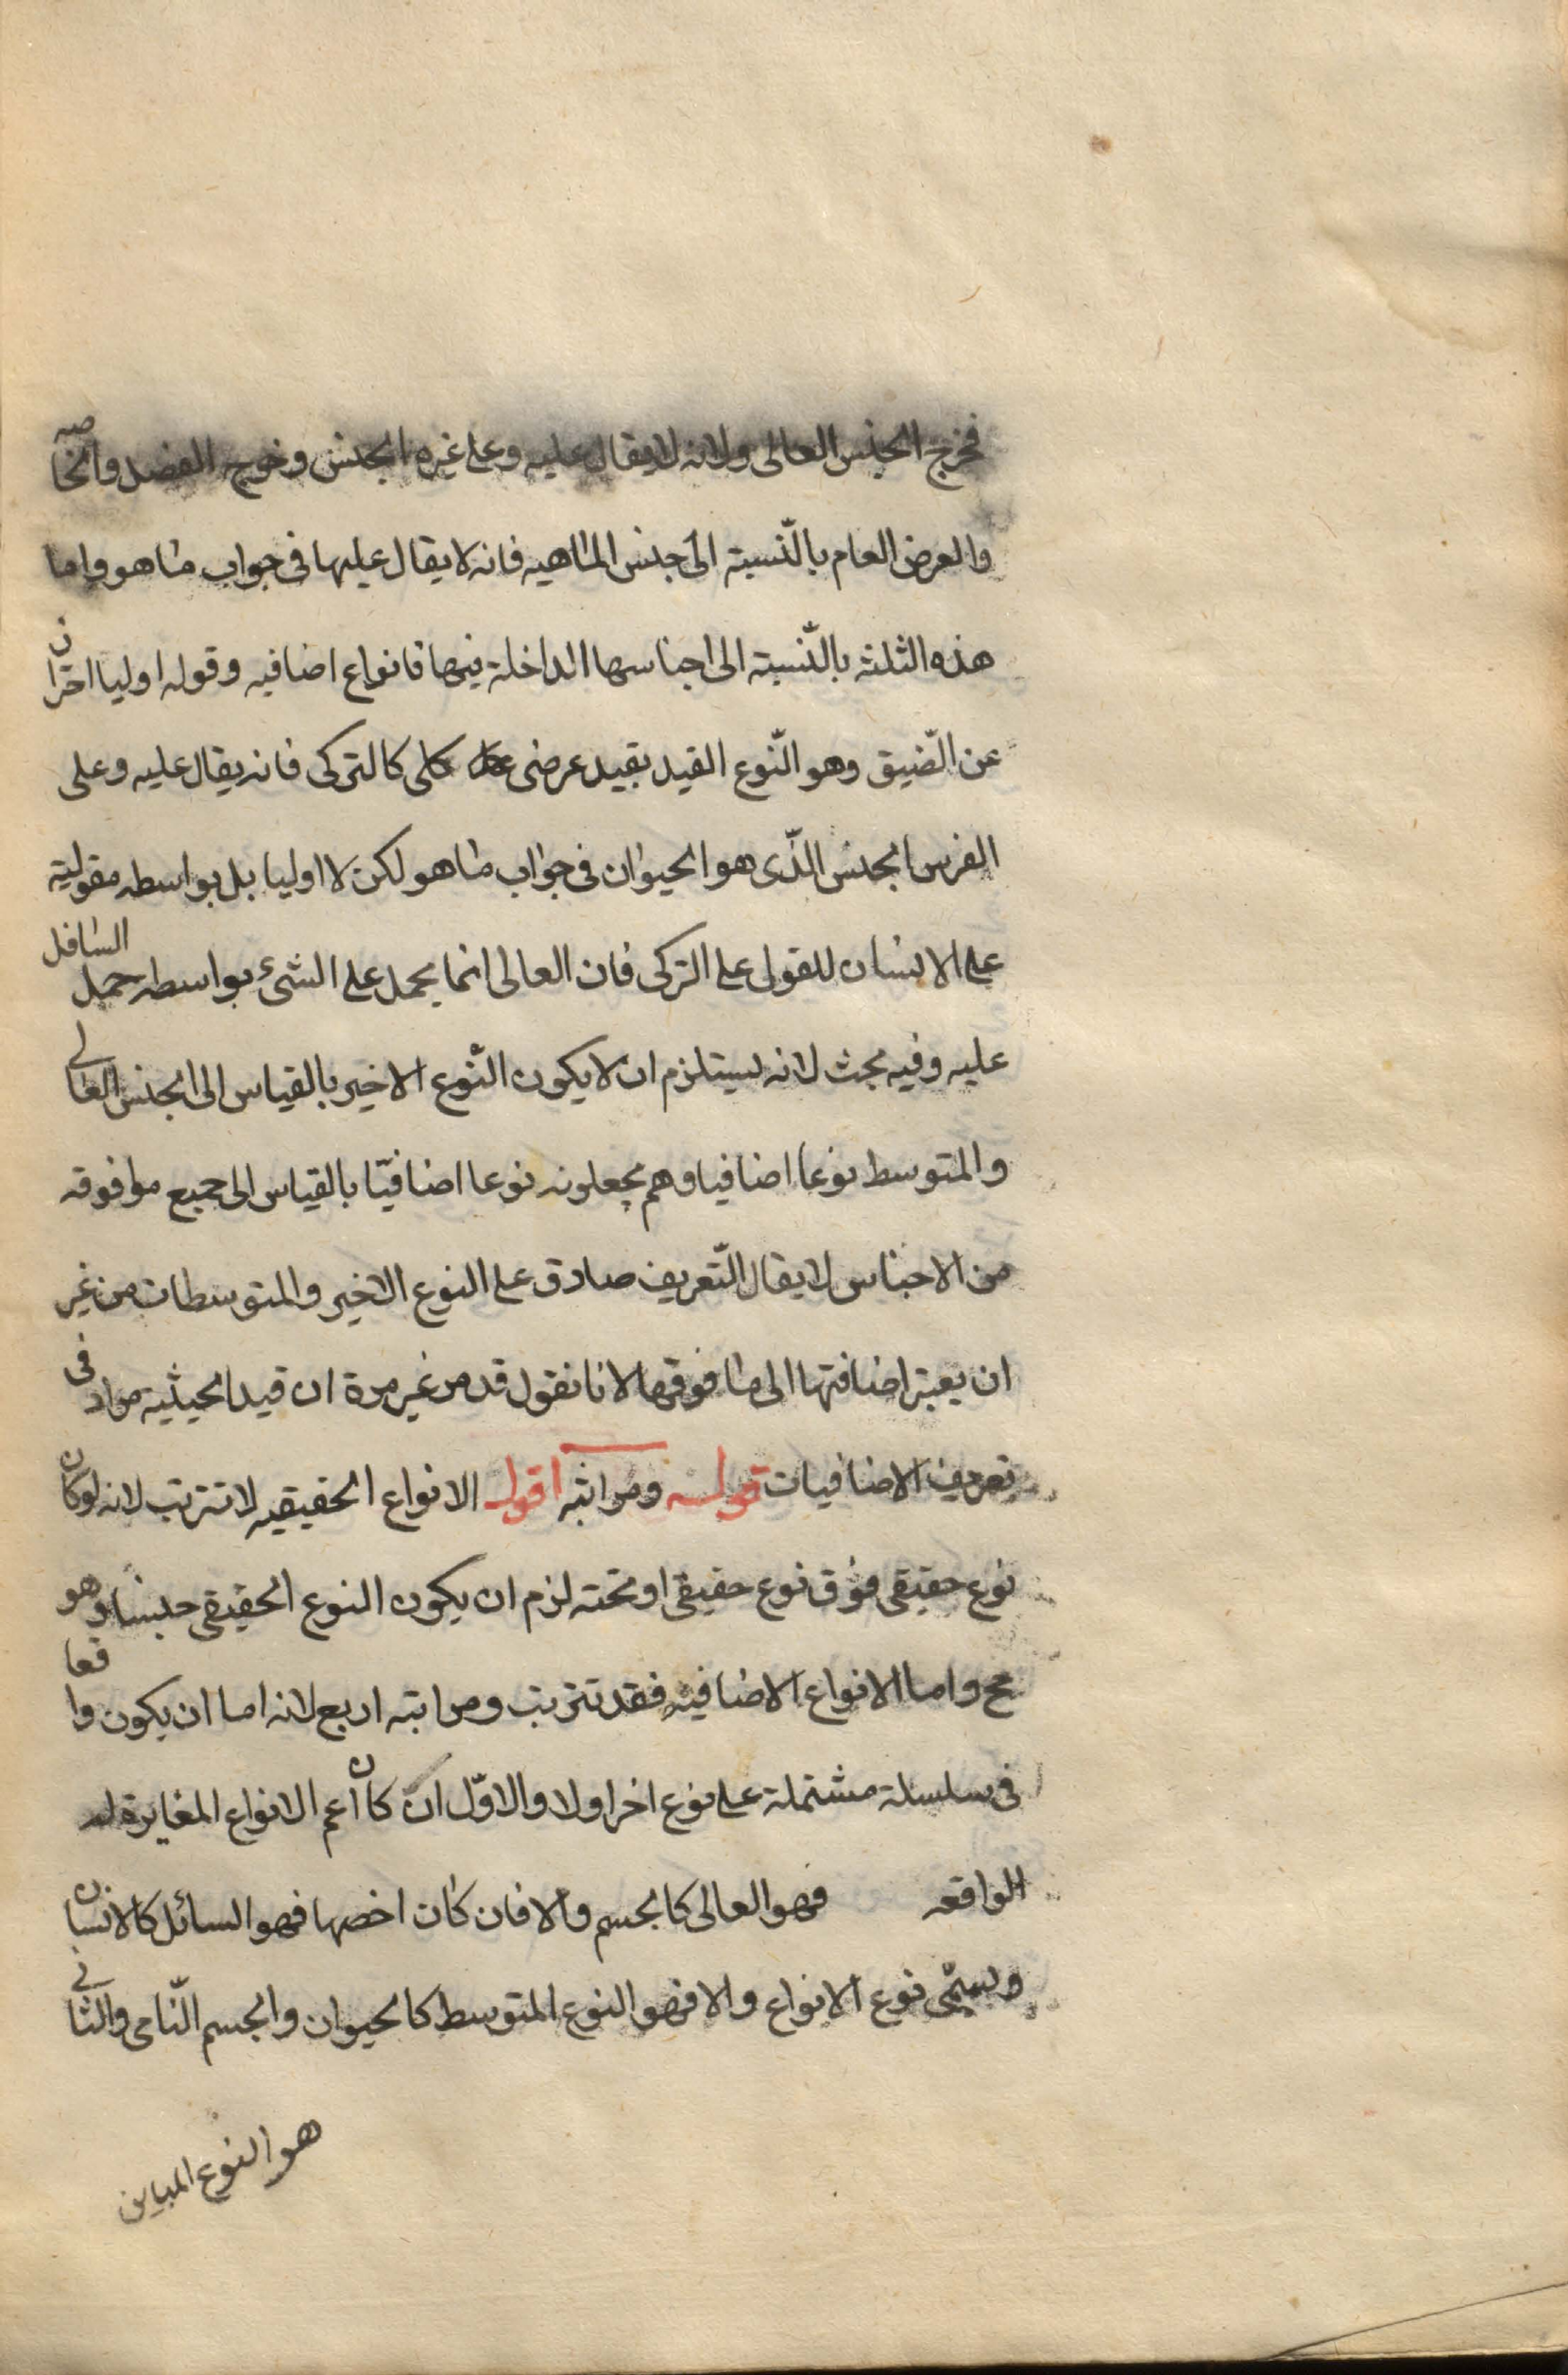 فخرج الجنس العالى ولانه لا يقال عليه وعلى غيره الجنس وخرج الفصل والخاصه
والعرض العام بالنّسبة الى جنس الماهيه فانه لا يقال عليها فى جواب ما هو واما
هذه الثلثه بالنّسبة الى اجناسها الداخلة فيها فانواع اضافيه وقوله اوليا احتران
عن الصّنف وهو النّوع القيد بقيد عرضى كلى كالتركى فانه يقال عليه وعلى
الفرس الجنس الّذى هو الحيوان فى جواب ما هو لكن لا اوليا بل بواسطه مقولية
على الانسان للقول على التركى فان العالى انما يحمل على الشئ بواسطه حمل السافل
عليه وفيه بحث لانه يستلزم ان لا يكون النّوع الاخير بالقياس الى الجنس العالى
والمتوسط نوعا اضافيا وهم يجعلونه نوعا اضافيّا بالقياس الى جميع ما فوقه
من الاجناس لا يقال التّعريف صادق على النوع الاخير والمتوسطات من غير
ان يعبتر اضافتها الى ما فوقها لانا نقول قد مر غير مرة ان قيد الحيثيه مراد فى
تعريف الاضافيات قوله ومراتبه اقول الانواع الحقيقيه لا تترتب لانه لو كان
نوع حقيقى فوق نوع حقيقى او تحته لزم ان يكون النوع الحقيقى جنسا وهو
مح واما الانواع الاضافيه فقد تترتب ومراتبه اربع لانه اما ان يكون واقعا
فى سلسلة مشتملة على نوع اخر او لا والاوّل ان كان أعم الانواع المغايرة له
الواقعه فهو العالى كالجسم والا فان كان اخصها فهو السائل كالانسان
ويسمّى نوع الانواع والا فهو النوع المتوسط كالحيوان والجسم النّامى والثانى
هو النوع المباين